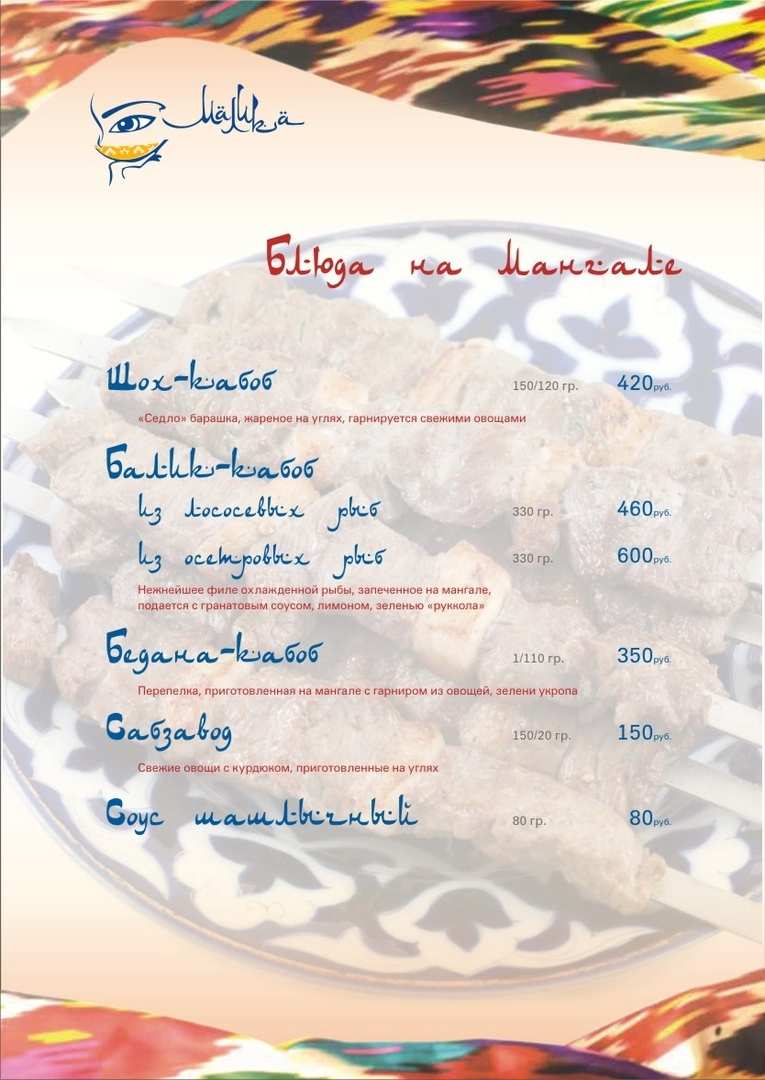 Малика
Блюда на Мангале
Шох-кабоб 150/120 гр. 420руб.
«Седло» барашка, жареное на углях, гарнируется свежими овощами
Балик-кабоб
Из лососевых рыб 330 гр. 460руб.
Из осетровых рыб 330 гр. 600руб.
Нежнейшее филе охлажденной рыбы, запеченное на мангале,
подается с гранатовым соусом, лимоном, зеленью «руккола»
Бедана-кабоб 1/110 гр. 350руб.
Перепелка, приготовленная на мангале с гарниром из овощей, зелени укропа
Сабзавод 150/20 гр. 150руб.
Свежие овощи с курдюком, приготовленные на углях
Соус шашлычный 80 гр. 80руб.